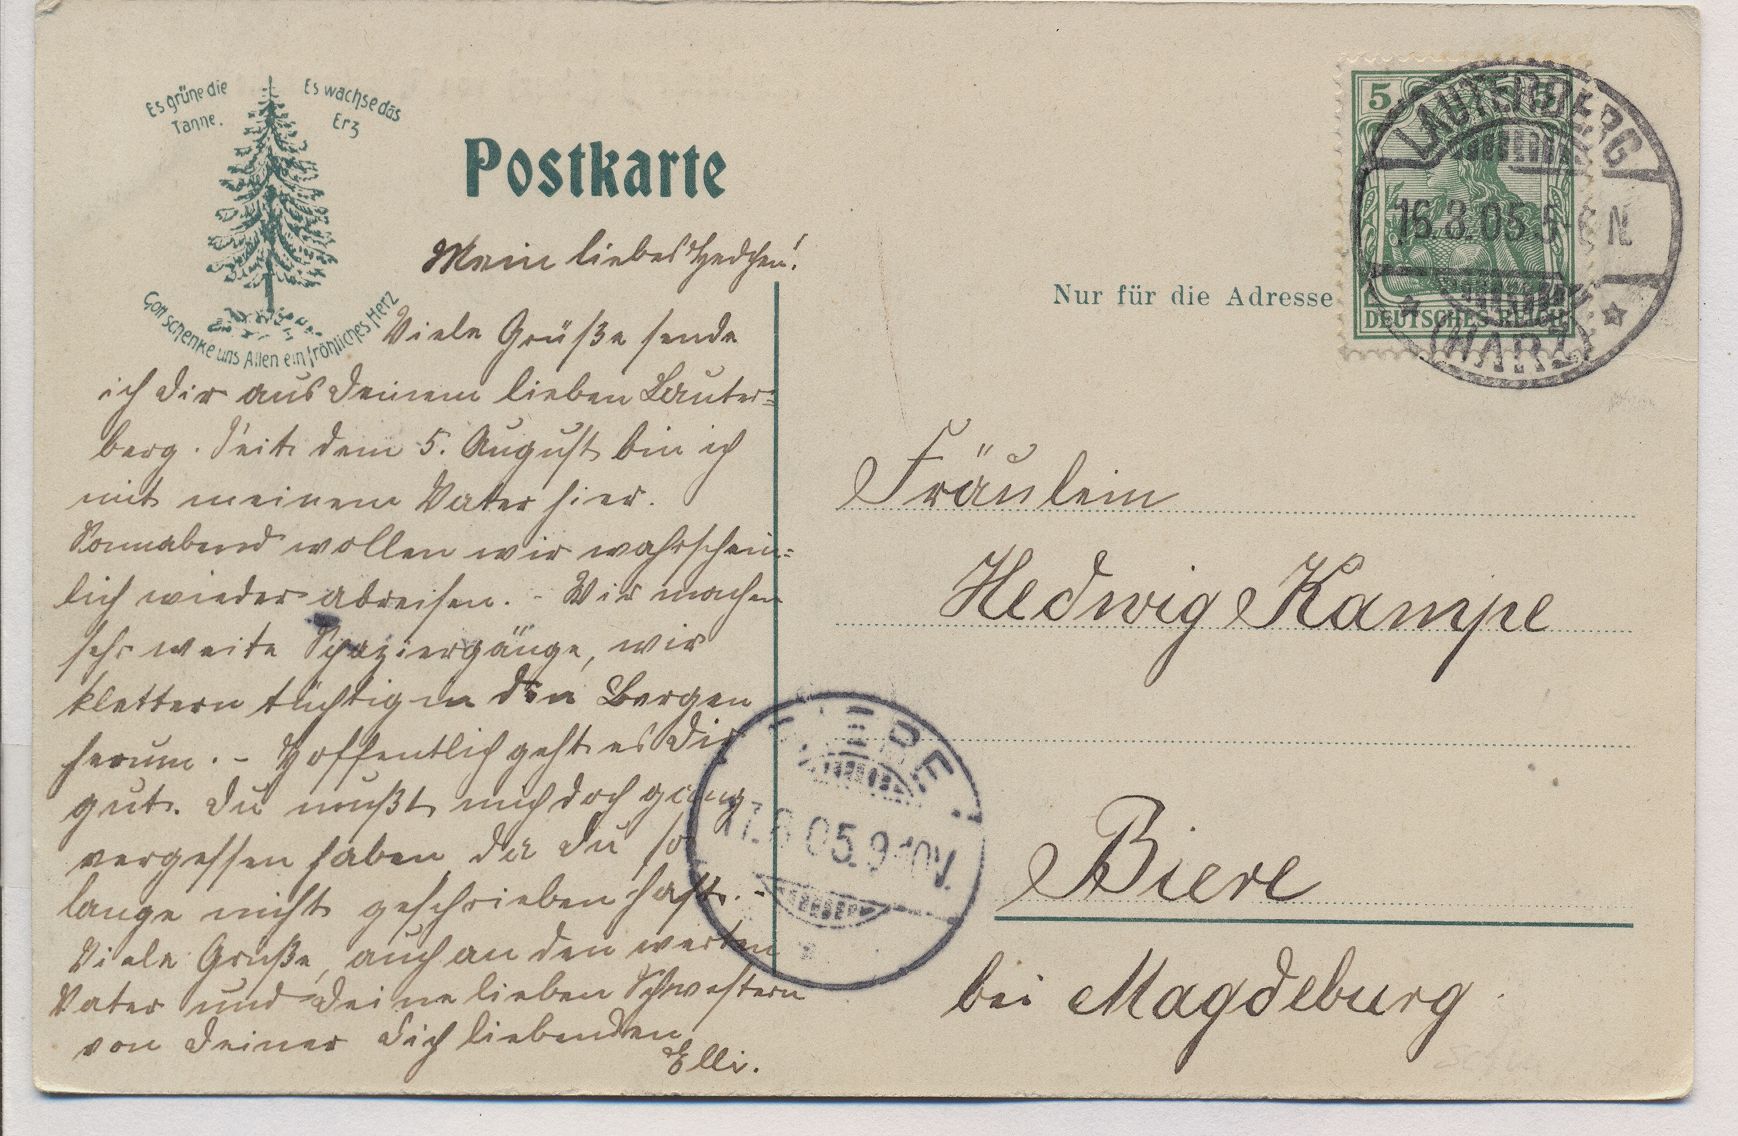 Es grüne die
Tanne.
Es wachse das
Erz
Gott schenke uns Allen ein fröhliches Herz
Postkarte
Nur für die Adresse
5
DEUTSCHES REICH
LAUTERBERG
16.8.05 5-6 N
(HARZ)
Mein liebes Hedchen!
Viele Grüße sende
ich Dir aus Deinem lieben Lauter=
berg. Seit dem 5. August bin ich
mit meinem Vater hier.
Sonnabend wollen wir wahrschein=
lich wieder abreisen. - Wir machen
sehr weite Spaziergänge, wir
klettern tüchtig in den Bergen
herum. - Hoffentlich geht es Dir
gut. Du mußt mich doch ganz
vergessen haben, da Du so
lange nicht geschrieben hast. -
Viele Grüße, auch an den werten
Vater und Deine lieben Schwestern
von Deiner Dich liebenden
Elli.
Fräulein
Hedwig Kampe
Biere
bei Magdeburg
17.8.05. 9-10V.